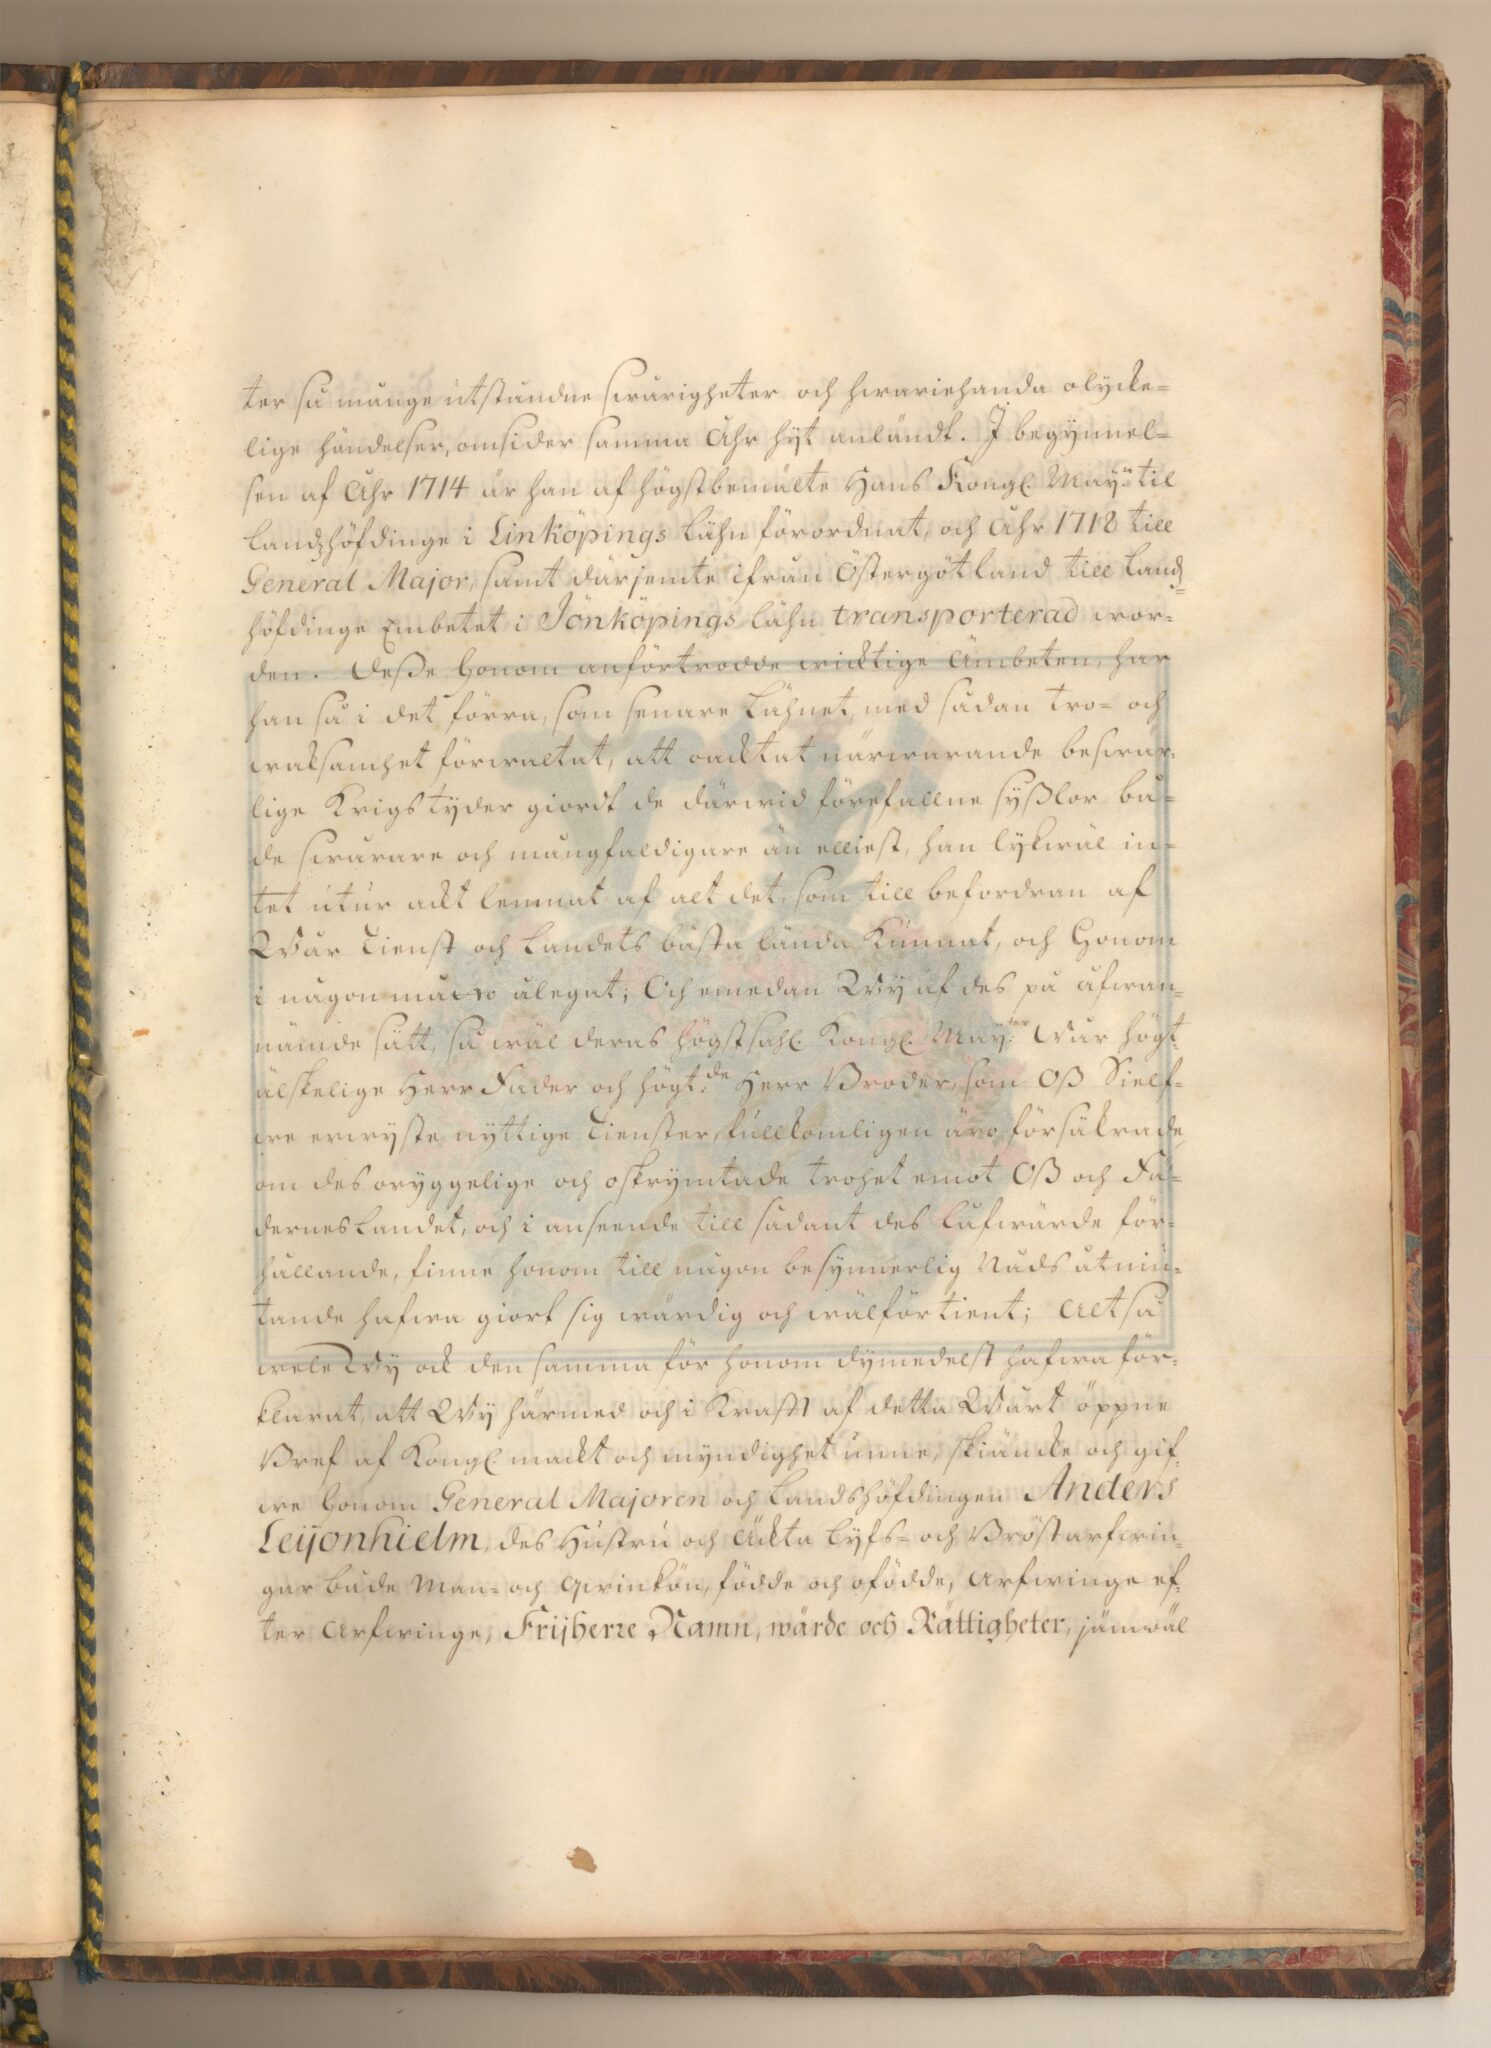 ter så månge utståndne swårigheter och hwariehanda olycke=
lige händelser, omsider samma Åhr hyt anländt. I begynnel=
sen af Åhr 1714 är han af högstbemälte Hans Kongl. May:tt til
Landzhöfdinge i Linköpings Lähn förordnat, och Åhr 1718 till
General Major, samt därjemte ifrån Östergötland till Landz=
höfdinge Embetet i Jönköpings Lähn transporterad wor=
den. Desse Honom anförtrodde wicktige Ämbeten, har
han så i det förra, som senare Lähnet, med sådan tro= och
waksamhet förwaltat, att oacktat närwarande beswär=
lige Krigs tyder giordt de därwid förefallne sysslor bå=
de swårare och mångfaldigare än elliest, han lykwäl in=
tet utur ackt lemnat af alt det, som till befordran af
Wår Tienst och Landets bästa lända kunnat, och Honom
i någon måtto ålegat; Och emedan Wy af des på åfwan=
nämde sätt, så wäl deras högstsahl. Kongl. May:ter Wår högt=
älskelige Herr Fader och högt:de Herr Broder, som Oß Sielf=
we erwyste nyttige Tienster, fullkomligen äro försäkrade
om des oryggelige och oskrymtade trohet emot Oß och Fä=
dernes Landet, och i anseende till sådant des Låfwärde för=
hållande, finne honom till någon besynnerlig Nåds åtniu=
tande hafwa giort sig wärdig och wälförtient; Altså
wele Wy ock den samma för honom dymedelst hafwa för=
klarat, att Wy härmed och i Krafft af detta Wårt öppne
Bref af Kongl. mackt och myndighet unne, skiäncke och gif=
we Honom General Majoren och Landshöfdingen Anders
Leijonhielm, des Hustru och Äckta Lyfs= och Bröstarfwin=
gar både Man= och Qwinkön, födde och ofödde, Arfwinge ef=
ter Arfwinge, Frijherre Namn, wärde och Rättigheter, jämwäl